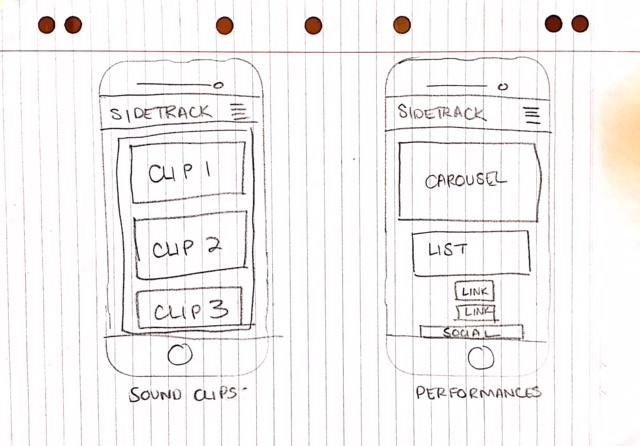 SIDETRACK
CLIP 1
CLIP 2
CLIP 3
SOUND CLIPS
SIDETRACK
CAROUSEL
LIST
LINK
LINK
SOCIAL
PERFORMANCES